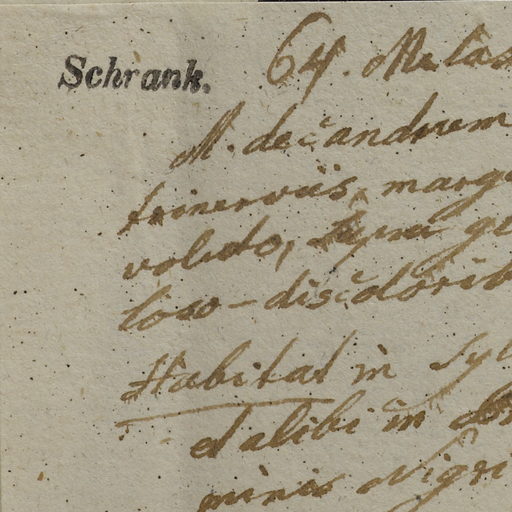 Schrank.
64. Melas
M. decandrum
trinerviis, marg
voluto,
loso-discolorib
Habitat in Syl
et alibi in
minis Nigri